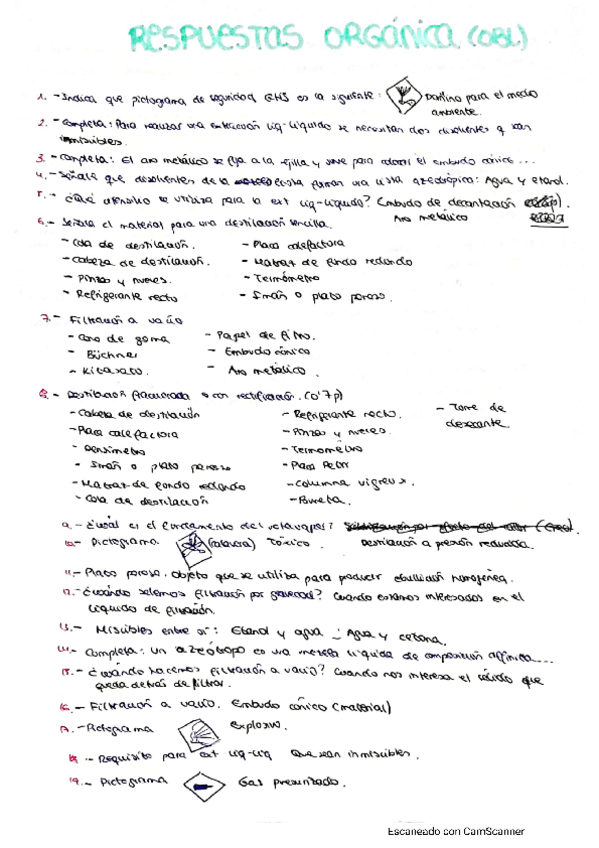 RESPUESTAS ORGÁNICA (OBL)
1. - Indica que pictograma de seguridad GHS es la siguiente: Dañino para el medio
ambiente.
2. - Completa: Para realizar una extracción líq-líquido se necesitan dos disolventes q sean
inmiscibles.
3. - Completa: El aro metálico se fija a la rejilla y sirve para colocar el embudo cónico ...
4. - Señale que desolventes de la lista forman una lista azeotrópica: Agua y etanol.
5. - ¿Qué utensilio se utiliza para la ext liq-líquido? Embudo de decantación
Aro metálico
6. - Señala el material para una destilación sencilla.
- Cola de destilación. - Placa calefactora
- Cabeza de destilación. - Matraz de fondo redondo
- Pinzas y nueces. - Termómetro
- Refrigerante recto - Imán o plato poroso.
7. - Filtración a vacío
- Cono de goma - Papel de filtro.
- Büchner - Embudo cónico
- Kitasato. - Aro metálico.
8. - Destilación fraccionada o con rectificación. (0'7p)
- Cabeza de destilación - Refrigerante recto. - Torre de
- Placa calefactora - Pinzas y nueces. desecante.
- Densímetro - Termómetro
- Imán o plato poroso - Placa Petri
- Matraz de fondo redondo - Columna vigreux.
- Cola de destilación - Bureta.
9. - ¿Cuál es el fundamento del rotavapor?
Destilación a presión reducida.
10. - Pictograma (calavera) Tóxico.
11. - Plato poroso, objeto que se utiliza para producir ebullición homogénea.
12. - ¿Cuándo solemos filtración por gravedad? Cuando estamos interesados en el
líquido de filtración.
13. - Miscibles entre sí: Etanol y agua ; Agua y cetona.
14. - Completa: Un azeótropo es una mezcla líquida de composición definida ...
15. - ¿Cuándo hacemos filtración a vacío? Cuando nos interesa el sólido que
queda detrás de filtrar.
16. - Filtración a vacío. Embudo cónico (material)
17. - Pictograma explosivo.
18. - Requisito para ext liq-liq Que sean inmiscibles.
19. - Pictograma Gas presurizado.
Escaneado con CamScanner